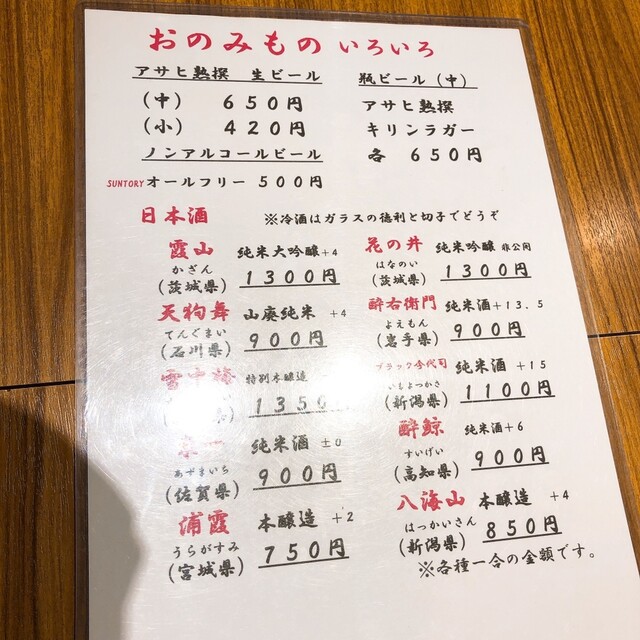 おのみもの いろいろ
アサヒ熟撰 生ビール
(中) 650円
(小) 420円
ノンアルコールビール
SUNTORY オールフリー 500円
瓶ビール(中)
アサヒ熟撰
キリンラガー
各 650円
日本酒 ※冷酒はガラスの徳利と切子でどうぞ
霞山 純米大吟醸+4
かざん
(茨城県) 1300円
天狗舞 山廃純米 +4
てんぐまい
(石川県) 900円
特別本醸造
1350
純米酒 ±0
あずまいち
(佐賀県) 900円
浦霞 本醸造 +2
うらがすみ
(宮城県) 750円
花の井 純米吟醸 非公開
はなのい
(茨城県) 1300円
酔右衛門 純米酒+13.5
よえもん
(岩手県) 900円
ブラック今代司 純米酒 +15
いまよつかさ
(新潟県) 1100円
酔鯨 純米酒+6
すいげい
(高知県) 900円
八海山 本醸造 +4
はっかいさん
(新潟県) 850円
※各種一合の金額です。